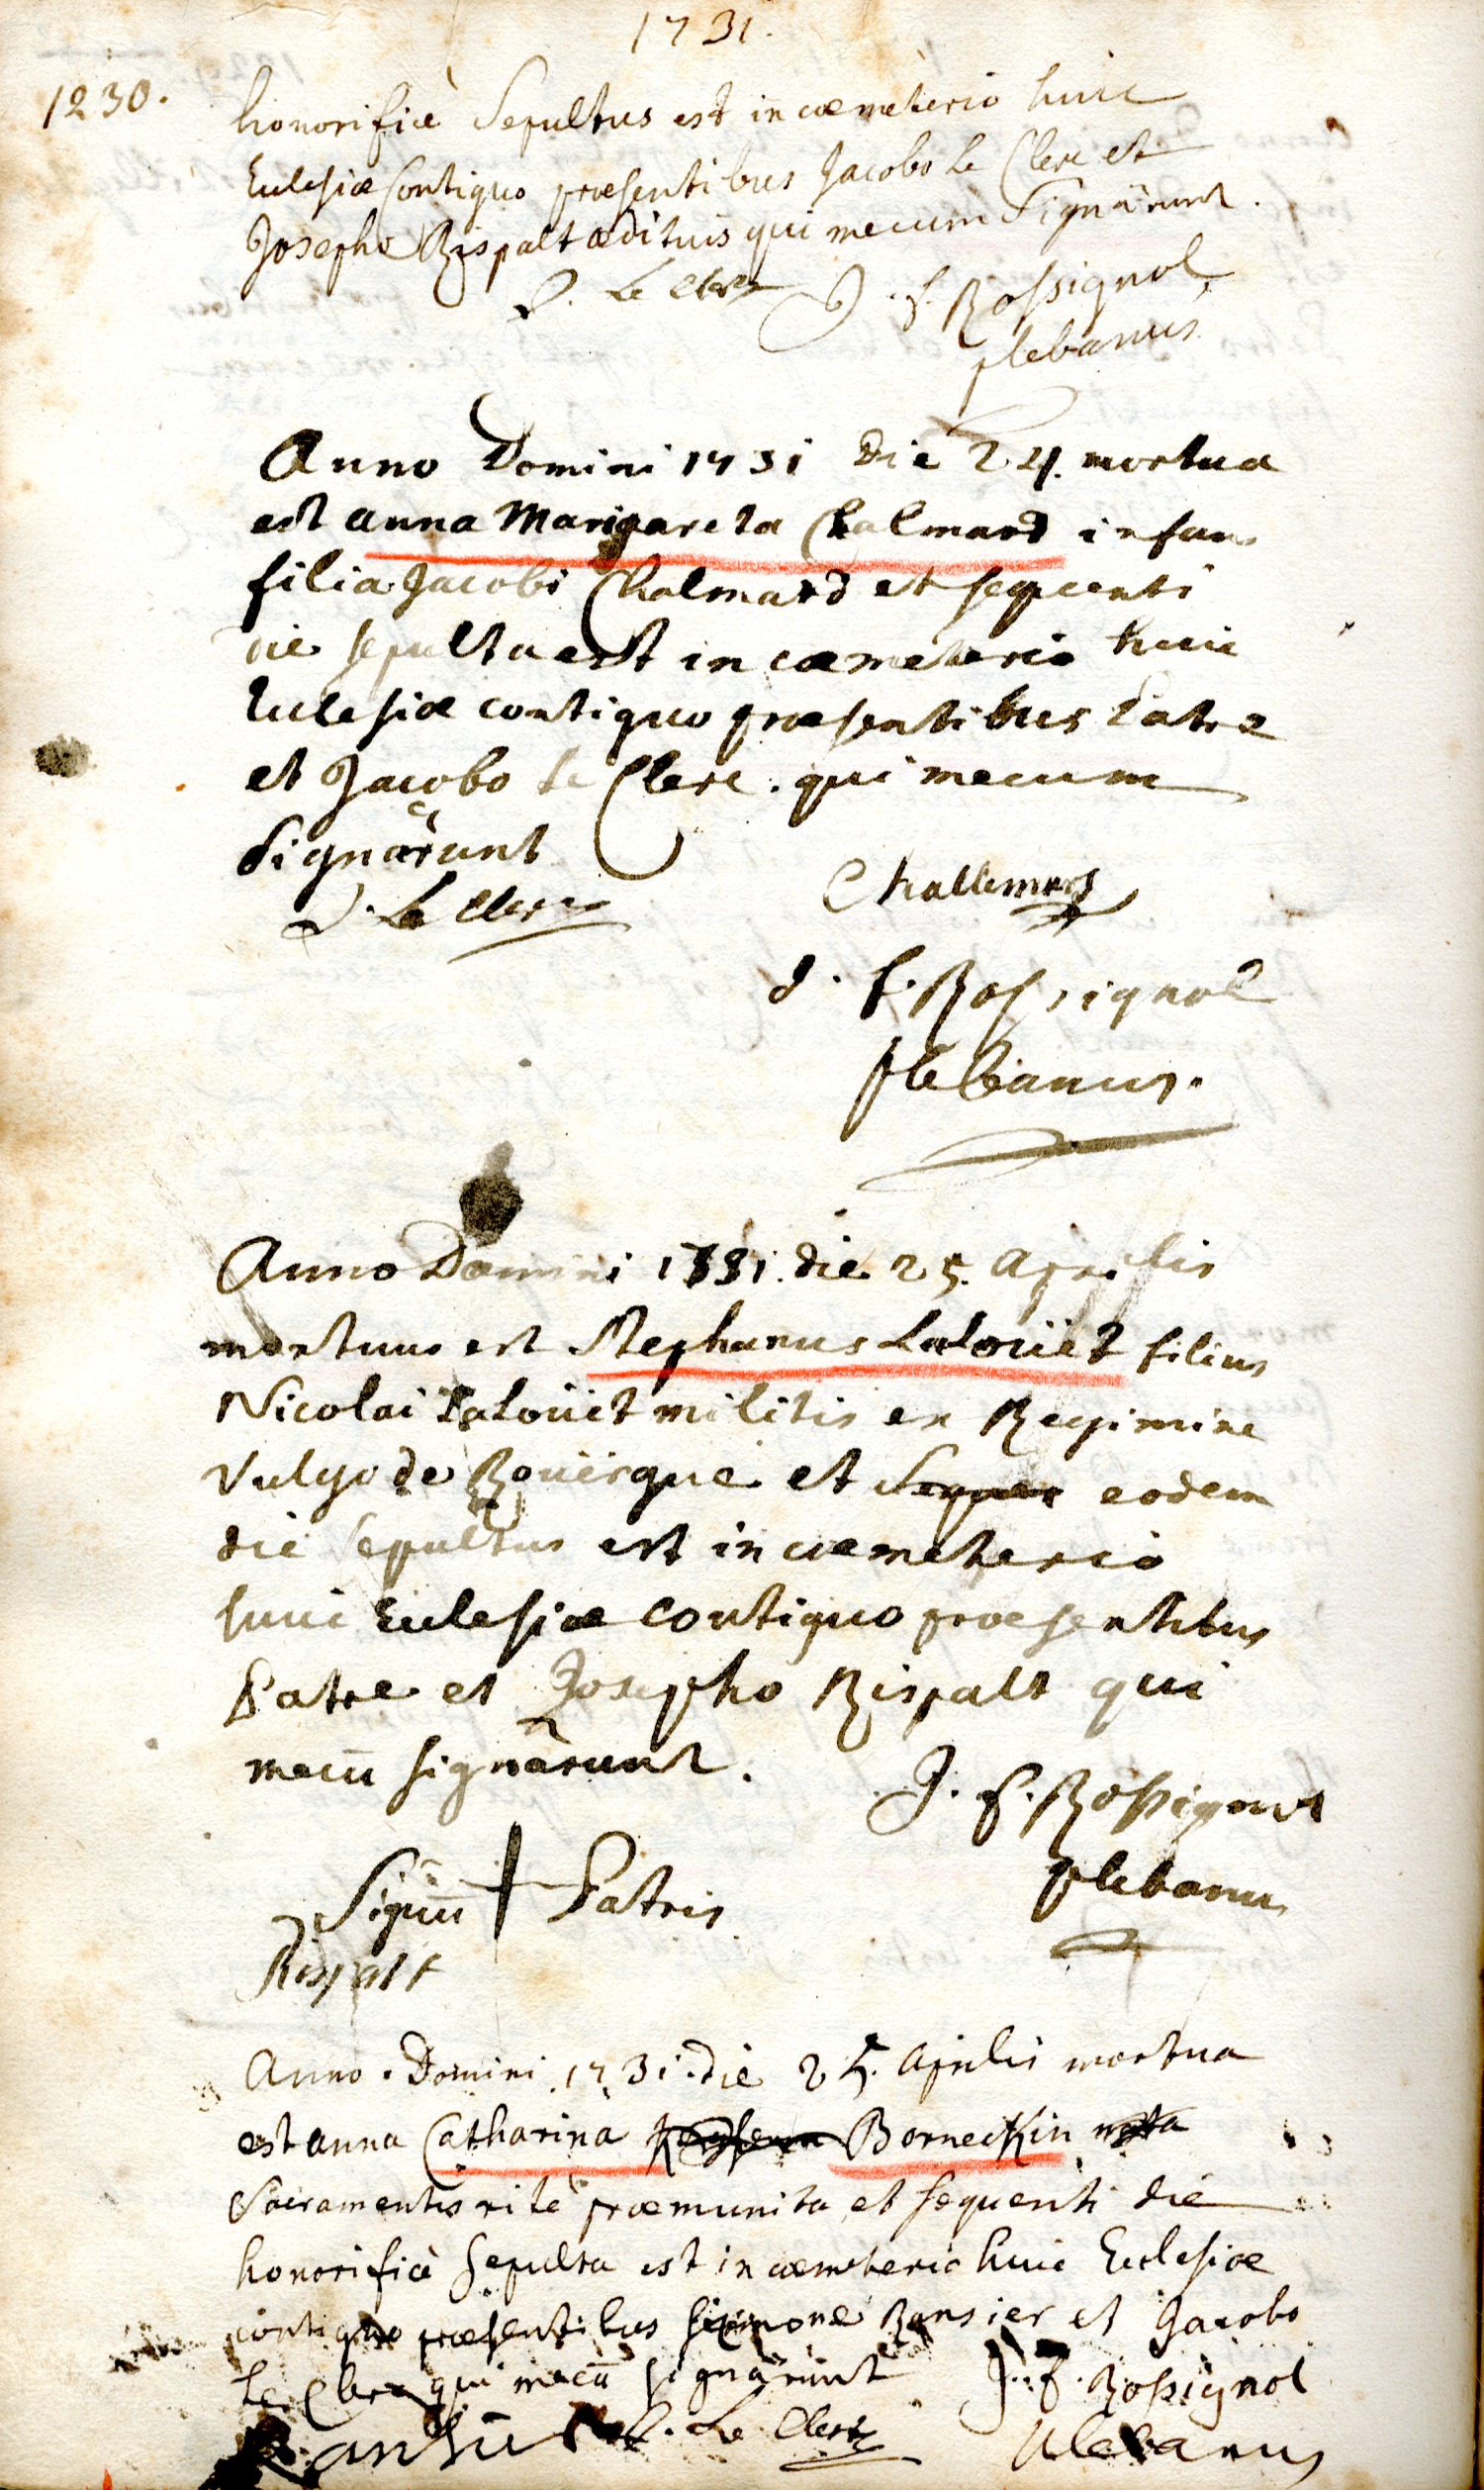 1731.
1230.
honorificè Sepultus est in cœmeterio huic
Eclesiæ Contiguo præsentibus Jacobo Le Clerc et
Josepho Rispalt ædituis qui mecum Signârunt.
J. Le Clerc J. f. Rossignol
plebanus
Anno Domini 1731 Die 24. mortua
est anna Margareta Chalmard infans
filia Jacobi Chalmard et sequenti
die sepulta est in cœmeterio huic
Eclesiæ contiguo præsentibus Patre
et Jacobo Le Clerc. qui mecum
Signârunt
J. Le Clerc Challemard
J. f. Rossignol
plebanus.
Anno Domini 1731. die 25. Aprilis
mortuus est Stephanus Laloüet filius
Nicolai Laloüet militis ex Regimine
Vulgo de Roüergue et eodem
die sepultus est in cœmeterio
huic Eclesiæ Contiguo præsentibus
Patre et Josepho Rispalt qui
mecū signârunt.
J. f. Rossignol
plebanus
Signū + Patris
Rispalt
Anno Domini 1731. die 25. Aprilis mortua
est anna Catharina Borneckin
Sacramentis rite præmunita et sequenti die
honorificè Sepulta est in cœmeterio huic Eclesiæ
contiguo præsentibus Simone Ransier et Jacobo
Le Clerc qui mecū signârunt J. f. Rossignol
J. Le Clerc plebanus